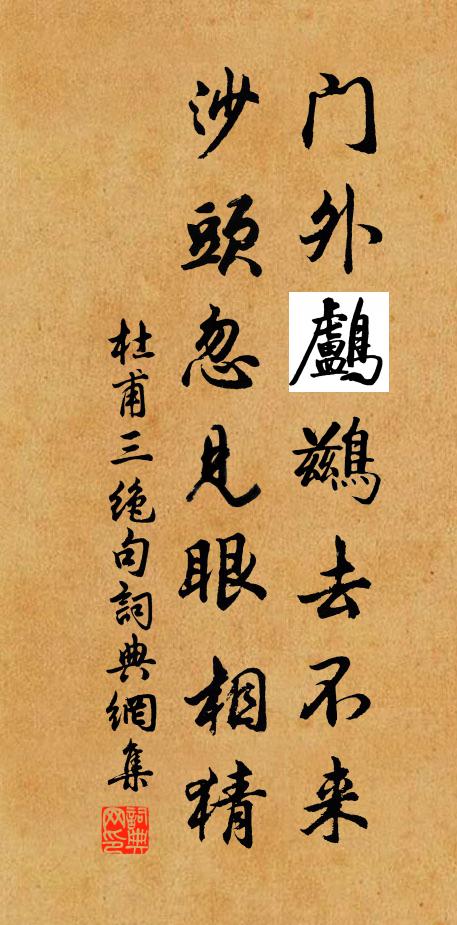 门外鸕鷀去不来
沙頭忽見眼相猜
杜甫三絶句詞典網集
詞典网印